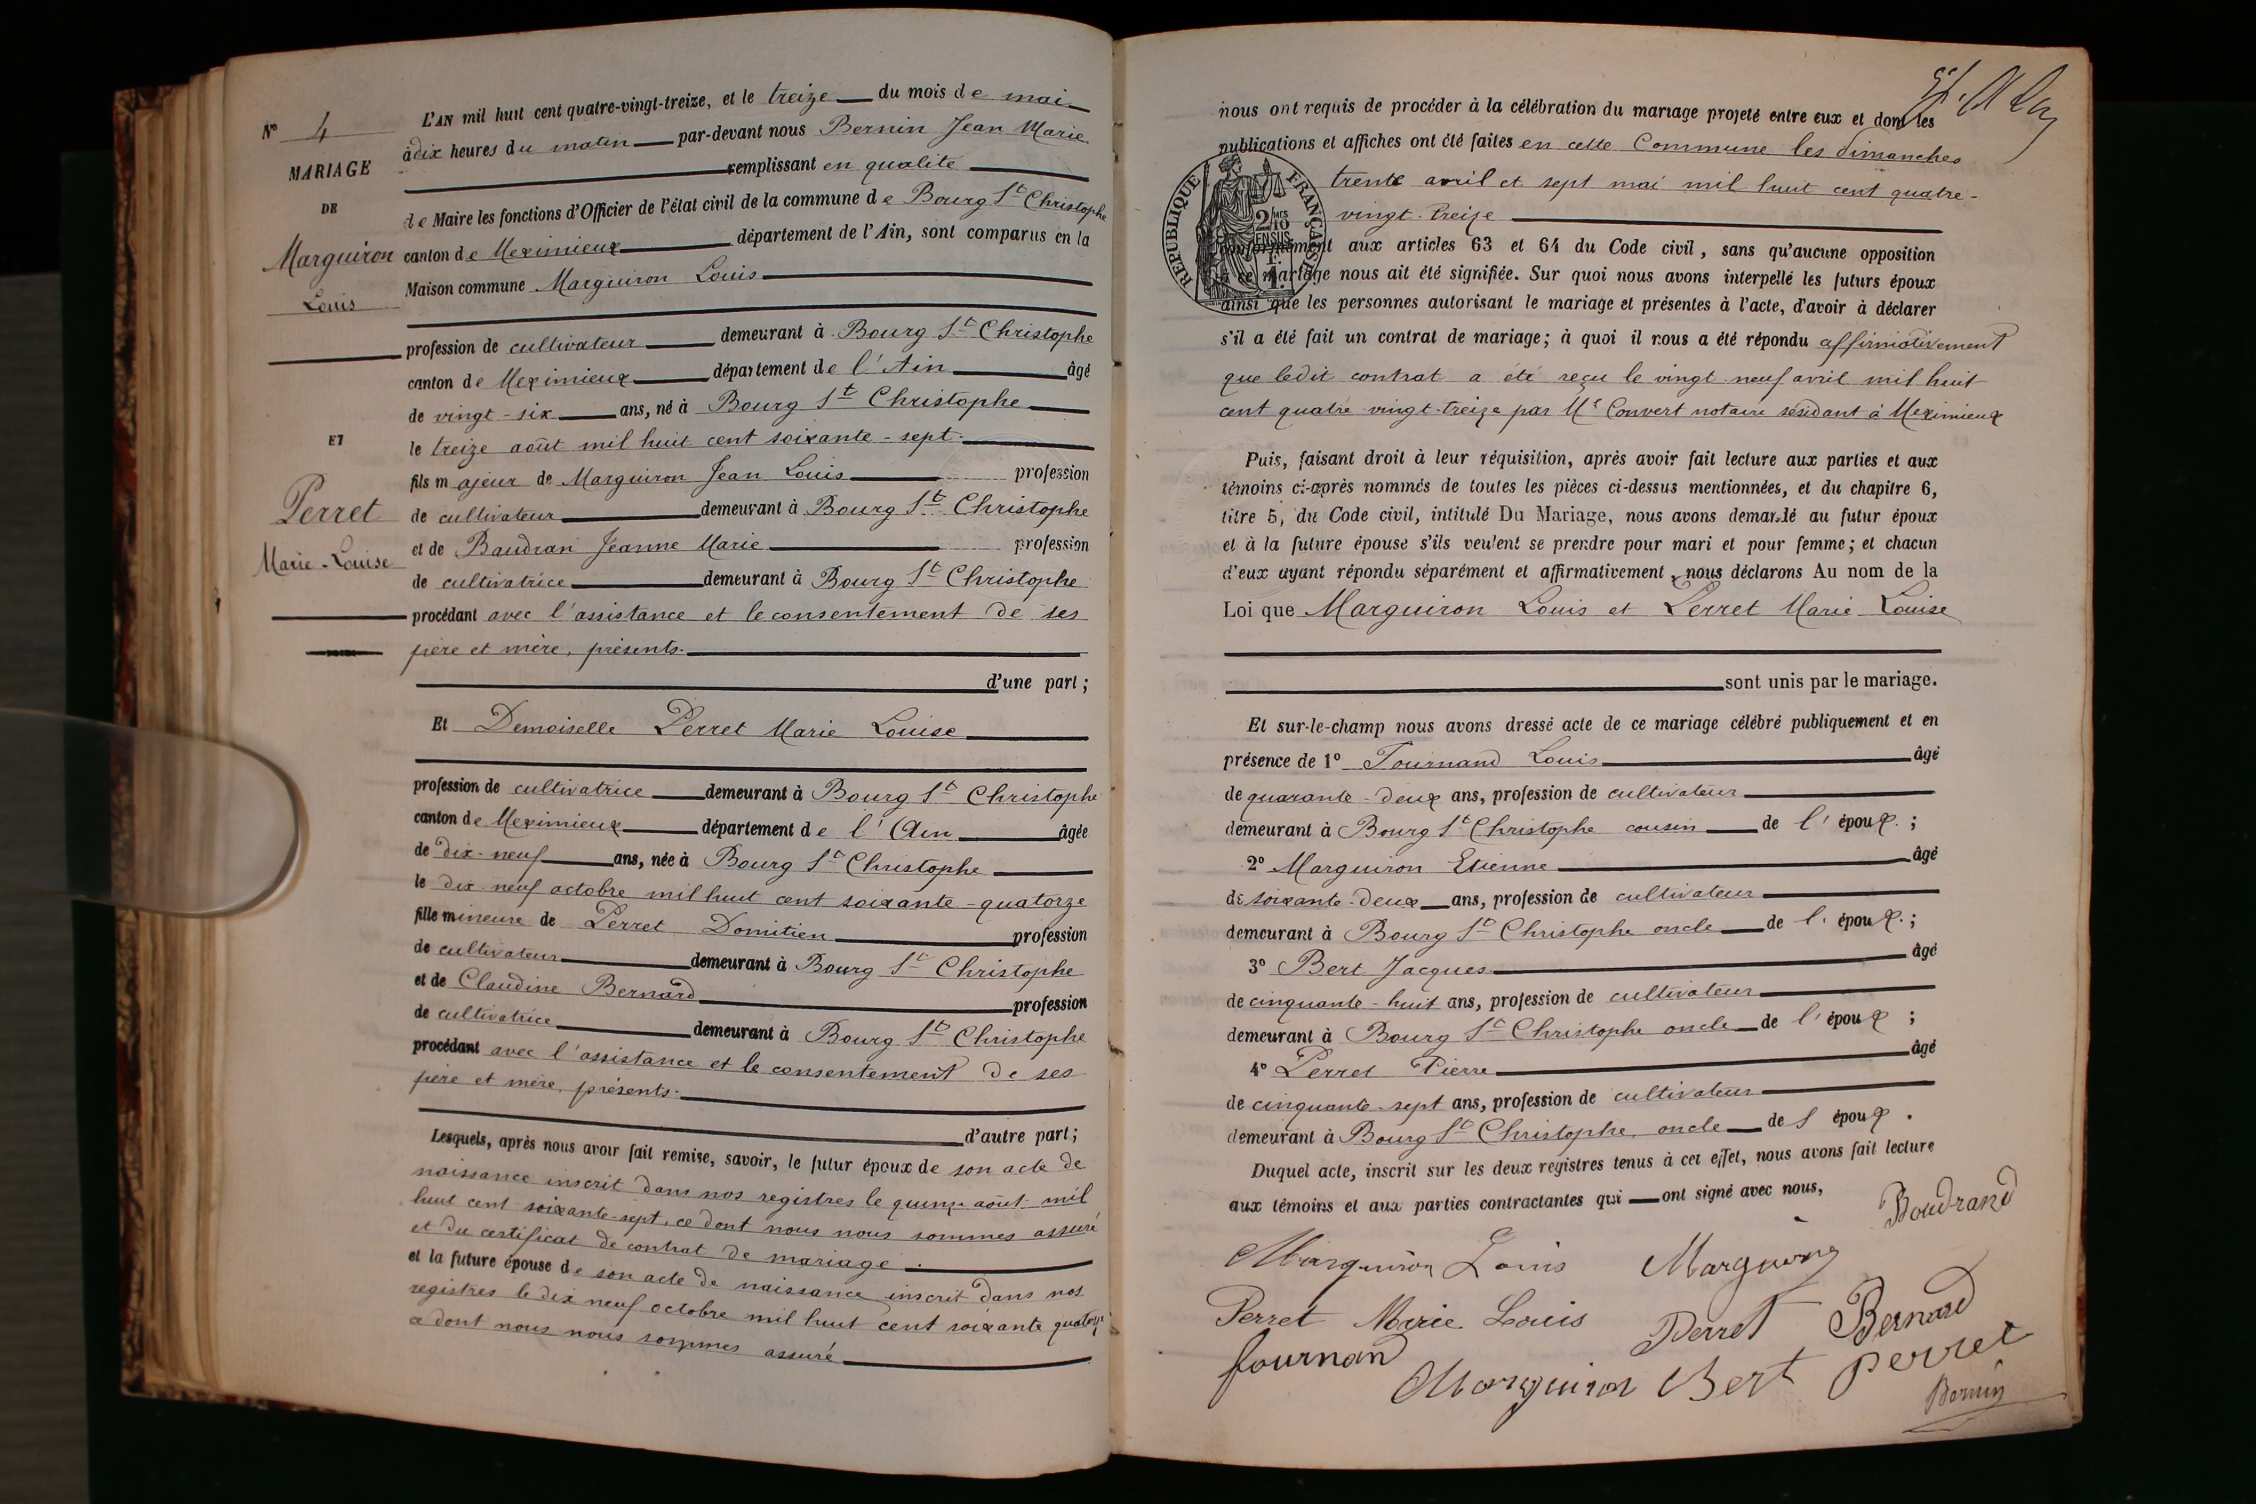 Nº 4
MARIAGE
DE
Marguiron
Louis
ET
Perret
Marie-Louise
L'AN mil huit cent quatre-vingt-treize, et le treize du mois de mai
à dix heures du matin par-devant nous Bernin Jean Marie
remplissant en qualité
de Maire les fonctions d'Officier de l'état civil de la commune de Bourg St Christophe
canton de Meximieux département de l'Ain, sont comparus en la
Maison commune Marguiron Louis
profession de cultivateur demeurant à Bourg St Christophe
canton de Meximieux département de l'Ain âgé
de vingt-six ans, né à Bourg St Christophe
le treize août mil huit cent soixante-sept
fils majeur de Marguiron Jean Louis profession
de cultivateur demeurant à Bourg St Christophe
et de Baudran Jeanne Marie profession
de cultivatrice demeurant à Bourg St Christophe
procédant avec l'assistance et le consentement de ses
père et mère, présents.
d'une part;
Et Demoiselle Perret Marie Louise
profession de cultivatrice demeurant à Bourg St Christophe
canton de Meximieux département de l'Ain âgée
de dix-neuf ans, née à Bourg St Christophe
le dix-neuf octobre mil huit cent soixante-quatorze
fille mineure de Perret Domitien profession
de cultivateur demeurant à Bourg St Christophe
et de Claudine Bernard profession
de cultivatrice demeurant à Bourg St Christophe
procédant avec l'assistance et le consentement de ses
père et mère, présents.
d'autre part;
Lesquels, après nous avoir fait remise, savoir, le futur époux de son acte de
naissance inscrit dans nos registres le quinze août mil
huit cent soixante-sept, ce dont nous nous sommes assuré
et du certificat de contrat de mariage.
et la future épouse de son acte de naissance inscrit dans nos
registres le dix neuf octobre mil huit cent soixante quatorze
ce dont nous nous sommes assuré
nous ont requis de procéder à la célébration du mariage projeté entre eux et dont les
publications et affiches ont été faites en cette Commune les dimanches
trente avril et sept mai mil huit cent quatre-
vingt-treize
RÉPUBLIQUE FRANÇAISE
conformément aux articles 63 et 64 du Code civil, sans qu'aucune opposition
à ce mariage nous ait été signifiée. Sur quoi nous avons interpellé les futurs époux
ainsi que les personnes autorisant le mariage et présentes à l'acte, d'avoir à déclarer
s'il a été fait un contrat de mariage; à quoi il nous a été répondu affirmativement
que ledit contrat a été reçu le vingt-neuf avril mil huit
cent quatre-vingt-treize par Me Convert notaire résidant à Meximieux
Puis, faisant droit à leur réquisition, après avoir fait lecture aux parties et aux
témoins ci-après nommés de toutes les pièces ci-dessus mentionnées, et du chapitre 6,
titre 5, du Code civil, intitulé Du Mariage, nous avons demandé au futur époux
et à la future épouse s'ils veulent se prendre pour mari et pour femme; et chacun
d'eux ayant répondu séparément et affirmativement, nous déclarons Au nom de la
Loi que Marguiron Louis et Perret Marie-Louise
sont unis par le mariage.
Et sur-le-champ nous avons dressé acte de ce mariage célébré publiquement et en
présence de 1º Tournand Louis âgé
de quarante-deux ans, profession de cultivateur
demeurant à Bourg St Christophe cousin de l'époux;
2º Marguiron Etienne âgé
de soixante-deux ans, profession de cultivateur
demeurant à Bourg St Christophe oncle de l'époux;
3º Bert Jacques âgé
de cinquante-huit ans, profession de cultivateur
demeurant à Bourg St Christophe oncle de l'époux;
4º Perret Pierre âgé
de cinquante-sept ans, profession de cultivateur
demeurant à Bourg St Christophe, oncle de l époux.
Duquel acte, inscrit sur les deux registres tenus à cet effet, nous avons fait lecture
aux témoins et aux parties contractantes qui ont signé avec nous,
Boudrand
Marguiron Louis Marguiron
Perret Marie Louis Perret Bernard
fournand Marguiron Bert Perret
Bernin